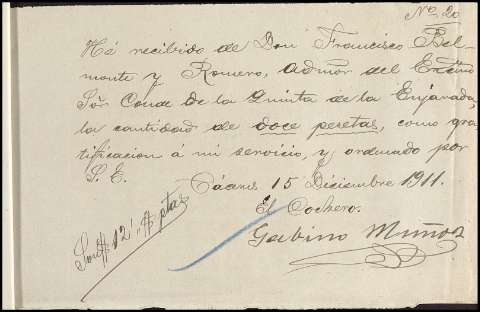 Nº 20
Hé recibido de Don Francisco Bel-
monte y Romero, Admor del Excmo
Sor Conde de la Quinta de la Enjarada,
la cantidad de doce pesetas, como gra-
tificacion á mi servicio, y ordenado por
S. E.
Cáceres 15 Diciembre 1911.
El Cochero.
Gabino Muñoz
Son # 12 " # ptas